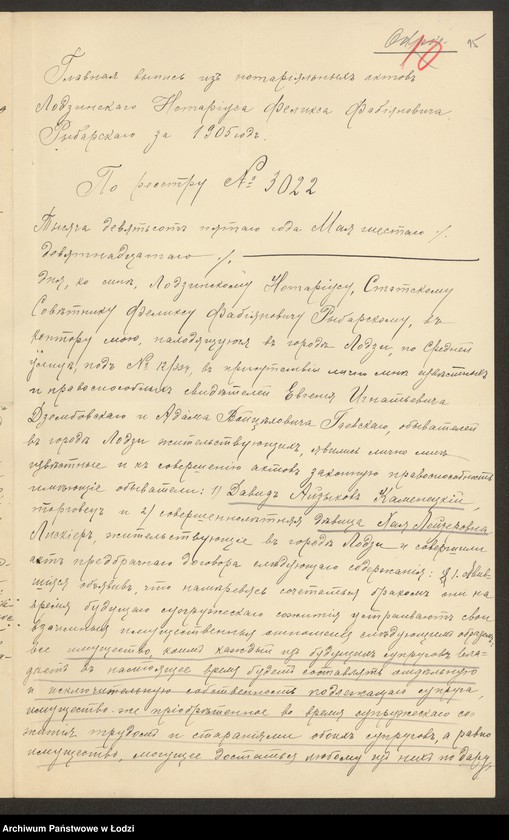 10
Главная выпись изъ нотаріальныхъ актовъ
Лодзинскаго Нотаріуса Феликса Фабіяновича
Рыбарскаго за 1905 годъ.
По реестру № 3022
Тысяча девятьсотъ пятаго года Мая шестаго /.
девятнадцатаго /.
дня, ко мнѣ, Лодзинскому Нотаріусу, Статскому
Совѣтнику Феликсу Фабіяновичу Рыбарскому, въ
контору мою, находящуюся въ городѣ Лодзи, по Средней
улицѣ подъ № 12/334, въ присутствіи лично мнѣ извѣстныхъ
и правоспособныхъ свидѣтелей Евгенія Игнатьевича
Дзембовскаго и Адама Войцѣховича Гаевскаго, обывателей
въ городѣ Лодзи жительствующихъ, явились лично мнѣ
извѣстные и къ совершенію актовъ законную правоспособность
имѣющіе обыватели: 1) Давидъ Айзыковъ Каменецкій,
торговецъ и 2) совершеннолѣтняя дѣвица Хая Лейзеровна
жительствующіе въ городѣ Лодзи и совершили
актъ предбрачнаго договора слѣдующаго содержанія: § 1. Явив-
шіеся объявили, что намѣреваясь сочетаться бракомъ они на
время будущаго супружескаго сожитія устраиваютъ свои
взаимныя имущественныя отношенія слѣдующимъ образомъ:
все имущество, коимъ каждый изъ будущихъ супруговъ вла-
дѣетъ въ настоящее время будетъ составлять отдѣльную
и исключительную собственность подлежащаго супруга,
имущество же пріобрѣтенное во время супружескаго со-
житія трудомъ и стараніями обоихъ супруговъ, а равно
имущество, могущее достаться любому изъ нихъ по дару,
Archiwum Państwowe w Łodzi